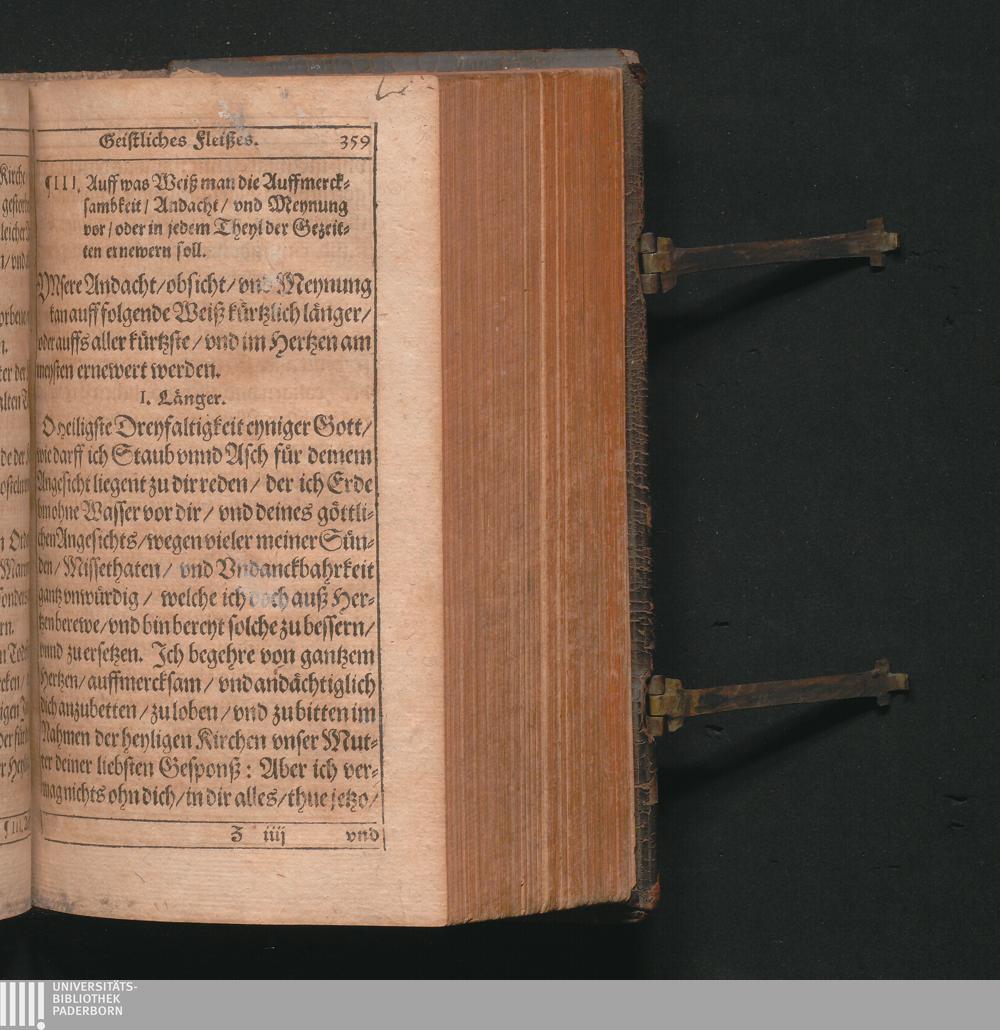 Geistliches Fleißes. 359
¶III. Auff was Weiß man die Auffmerck-
sambkeit / Andacht / vnd Meynung
vor / oder in jedem Theyl der Gezeit-
ten ernewern soll.
VNsere Andacht / obsicht / vnd Meynung
kan auff folgende Weiß kürtzlich länger /
oder auffs aller kürtzste / vnd im Hertzen am
meysten ernewert werden.
I. Länger.
O heiligste Dreyfaltigkeit eyniger Gott /
wie darff ich Staub vnnd Asch für deinem
Angesicht liegent zu dir reden / der ich Erde
bin ohne Wasser vor dir / vnd deines göttli-
chen Angesichts / wegen vieler meiner Sün-
den / Missethaten / vnd Vndanckbahrkeit
gantz vnwürdig / welche ich doch auß Her-
tzen berewe / vnd bin bereyt solche zu bessern /
vnnd zu ersetzen. Ich begehre von gantzem
Hertzen / auffmercksam / vnd andächtiglich
dich anzubetten / zu loben / vnd zu bitten im
Nahmen der heyligen Kirchen vnser Mut-
ter deiner liebsten Gesponß : Aber ich ver-
mag nichts ohn dich / in dir alles / thue jetzo /
Z iiij vnd
UNIVERSITÄTS-
BIBLIOTHEK
PADERBORN